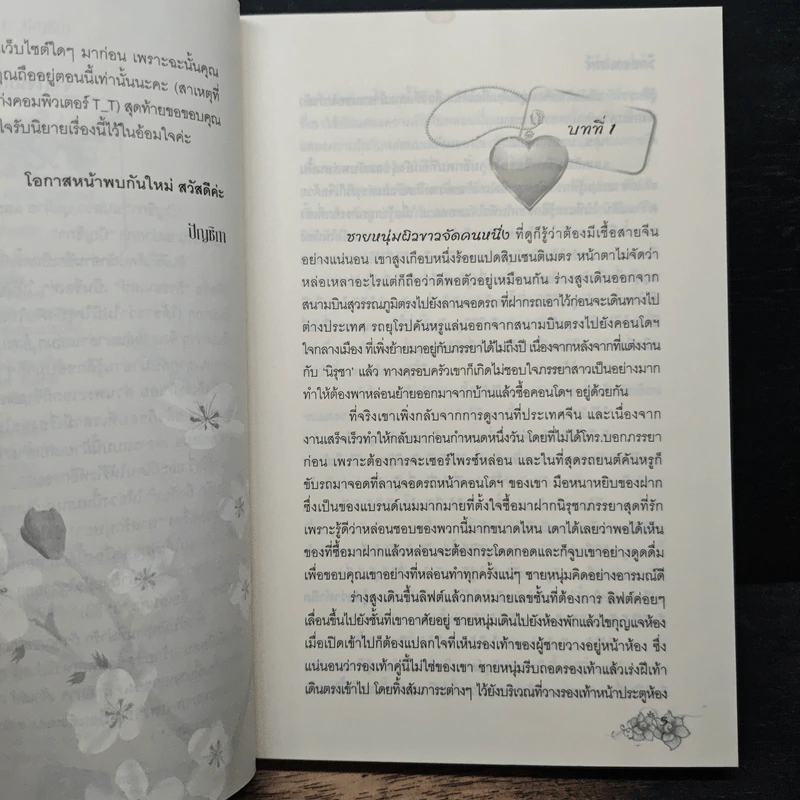 เว็บไซต์ใดๆ มาก่อน เพราะฉะนั้นคุณ
คุณถืออยู่ตอนนี้เท่านั้นนะคะ (สาเหตุที่
คอมพิวเตอร์ T_T) สุดท้ายขอขอบคุณ
รับนิยายเรื่องนี้ไว้ในอ้อมใจค่ะ
โอกาสหน้าพบกันใหม่ สวัสดีค่ะ
ปัญธิกา
บทที่ 1
ชายหนุ่มผิวขาวจัดคนหนึ่ง ที่ดูก็รู้ว่าต้องมีเชื้อสายจีน
อย่างแน่นอน เขาสูงเกือบหนึ่งร้อยแปดสิบเซนติเมตร หน้าตาไม่จัดว่า
หล่อเหลาอะไรแต่ก็ถือว่าดีพอตัวอยู่เหมือนกัน ร่างสูงเดินออกจาก
สนามบินสุวรรณภูมิตรงไปยังลานจอดรถ ที่ฝากรถเอาไว้ก่อนจะเดินทางไป
ต่างประเทศ รถยุโรปคันหรูแล่นออกจากสนามบินตรงไปยังคอนโดฯ
ใจกลางเมือง ที่เพิ่งย้ายมาอยู่กับภรรยาได้ไม่ถึงปี เนื่องจากหลังจากที่แต่งงาน
กับ 'นิรุชา' แล้ว ทางครอบครัวเขาก็เกิดไม่ชอบใจภรรยาสาวเป็นอย่างมาก
ทำให้ต้องพาหล่อนย้ายออกมาจากบ้านแล้วซื้อคอนโดฯ อยู่ด้วยกัน
ที่จริงเขาเพิ่งกลับจากการดูงานที่ประเทศจีน และเนื่องจาก
งานเสร็จเร็วทำให้กลับมาก่อนกำหนดหนึ่งวัน โดยที่ไม่ได้โทร.บอกภรรยา
ก่อน เพราะต้องการจะเซอร์ไพรซ์หล่อน และในที่สุดรถยนต์คันหรูก็
ขับรถมาจอดที่ลานจอดรถหน้าคอนโดฯ ของเขา มือหนาหยิบของฝาก
ซึ่งเป็นของแบรนด์เนมมากมายที่ตั้งใจซื้อมาฝากนิรุชาภรรยาสุดที่รัก
เพราะรู้ดีว่าหล่อนชอบของพวกนี้มากขนาดไหน เดาได้เลยว่าพอได้เห็น
ของที่ซื้อมาฝากแล้วหล่อนจะต้องกระโดดกอดและก็จูบเขาอย่างดูดดื่ม
เพื่อขอบคุณเขาอย่างที่หล่อนทำทุกครั้งแน่ๆ ชายหนุ่มคิดอย่างอารมณ์ดี
ร่างสูงเดินขึ้นลิฟต์แล้วกดหมายเลขชั้นที่ต้องการ ลิฟต์ค่อยๆ
เลื่อนขึ้นไปยังชั้นที่เขาอาศัยอยู่ ชายหนุ่มเดินไปยังห้องพักแล้วไขกุญแจห้อง
เมื่อเปิดเข้าไปก็ต้องแปลกใจที่เห็นรองเท้าของผู้ชายวางอยู่หน้าห้อง ซึ่ง
แน่นอนว่ารองเท้าคู่นี้ไม่ใช่ของเขา ชายหนุ่มรีบถอดรองเท้าแล้วเร่งฝีเท้า
เดินตรงเข้าไป โดยทิ้งสัมภาระต่างๆ ไว้ยังบริเวณที่วางรองเท้าหน้าประตูห้อง
5